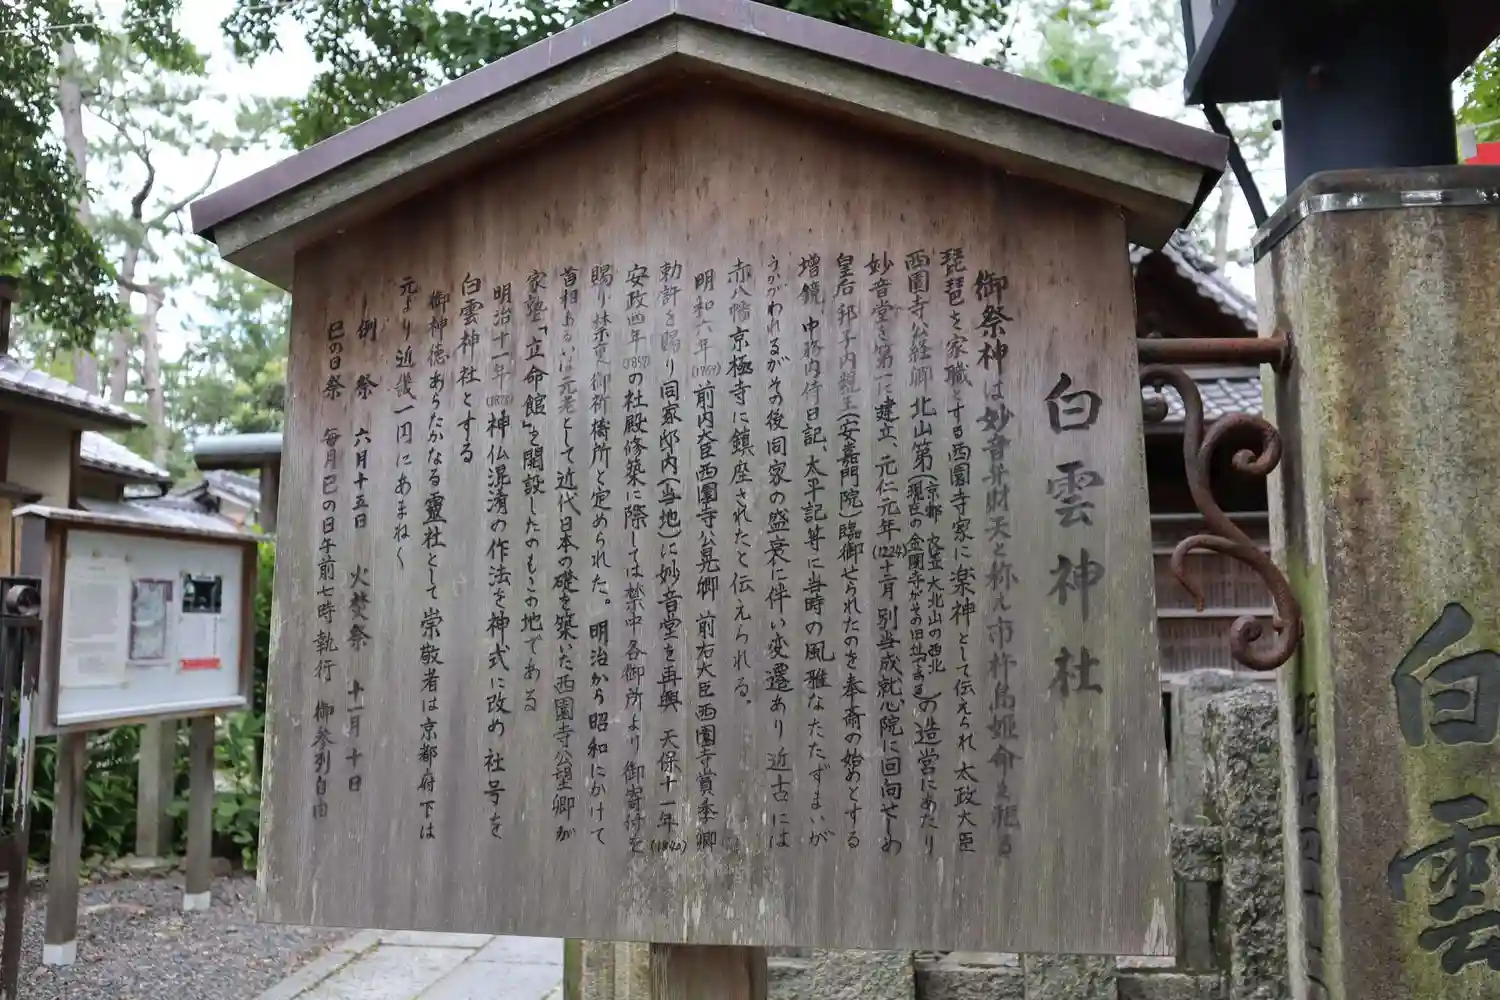 白雲神社
御祭神は妙音弁財天と称え市杵島姫命を祀る
琵琶を家職とする西園寺家に楽神として伝えられ 太政大臣
西園寺公経卿 北山第(京都 衣笠大北山の西北
現在の金閣寺がその旧址である)の造営にあたり
妙音堂を第一に建立、元仁元年(1224)十二月 別当成就心院に回向せしめ
皇后 邦子内親王(安嘉門院)臨御せられたのを奉斎の始めとする
増鏡、中務内侍日記、太平記等に当時の風雅なたたずまいが
うかがわれるがその後同家の盛衰に伴い変遷あり 近古には
赤八幡京極寺に鎮座されたと伝えられる。
明和六年(1769)前内大臣西園寺公晃卿 前右大臣西園寺賞季卿
勅許を賜り同家邸内(当地)に妙音堂を再興 天保十一年(1840)
安政四年(1857)の社殿修築に際しては禁中各御所より御寄付を
賜り 禁裏御祈祷所と定められた。明治から昭和にかけて
首相あるいは元老として近代日本の礎を築いた西園寺公望卿が
家塾「立命館」を開設したのもこの地である
明治十一年(1878)神仏混淆の作法を神式に改め 社号を
白雲神社とする
御神徳あらたかなる霊社として 崇敬者は京都府下は
元より近畿一円にあまねく
例祭 六月十五日 火焚祭 十一月十日
巳の日祭 毎月巳の日午前七時執行 御参列自由
白雲